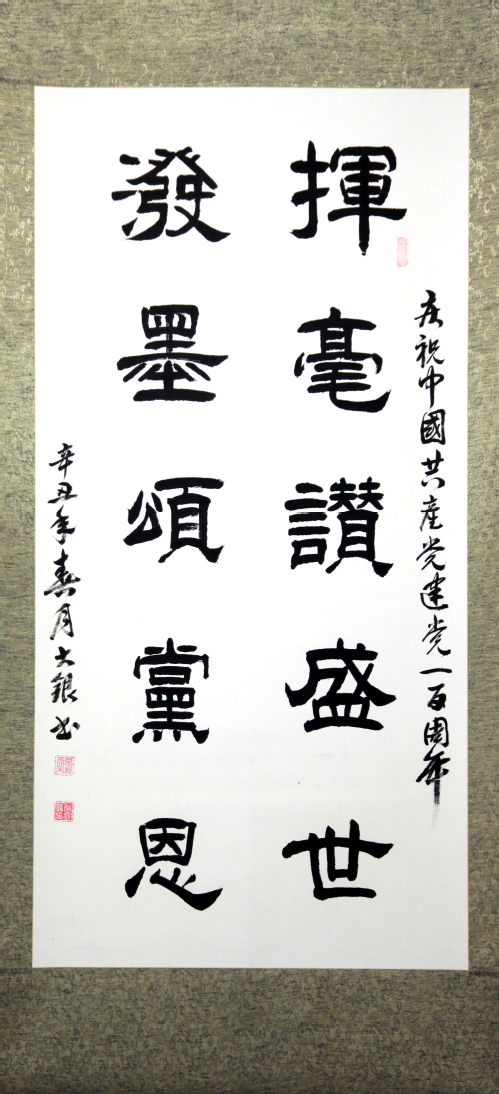 庆祝中國共產党建党一百周年
揮毫讃盛世
發墨頌黨恩
辛丑年春月大銀书